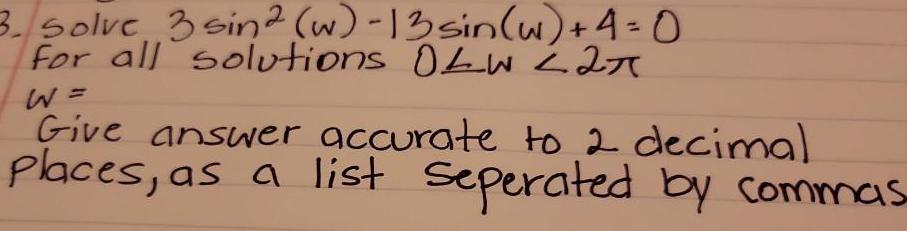 3. Solve 3 sin² (w) - 13 sin(w) + 4 = 0
for all solutions 0 ≤ w < 2π
w =
Give answer accurate to 2 decimal
places, as a list seperated by commas